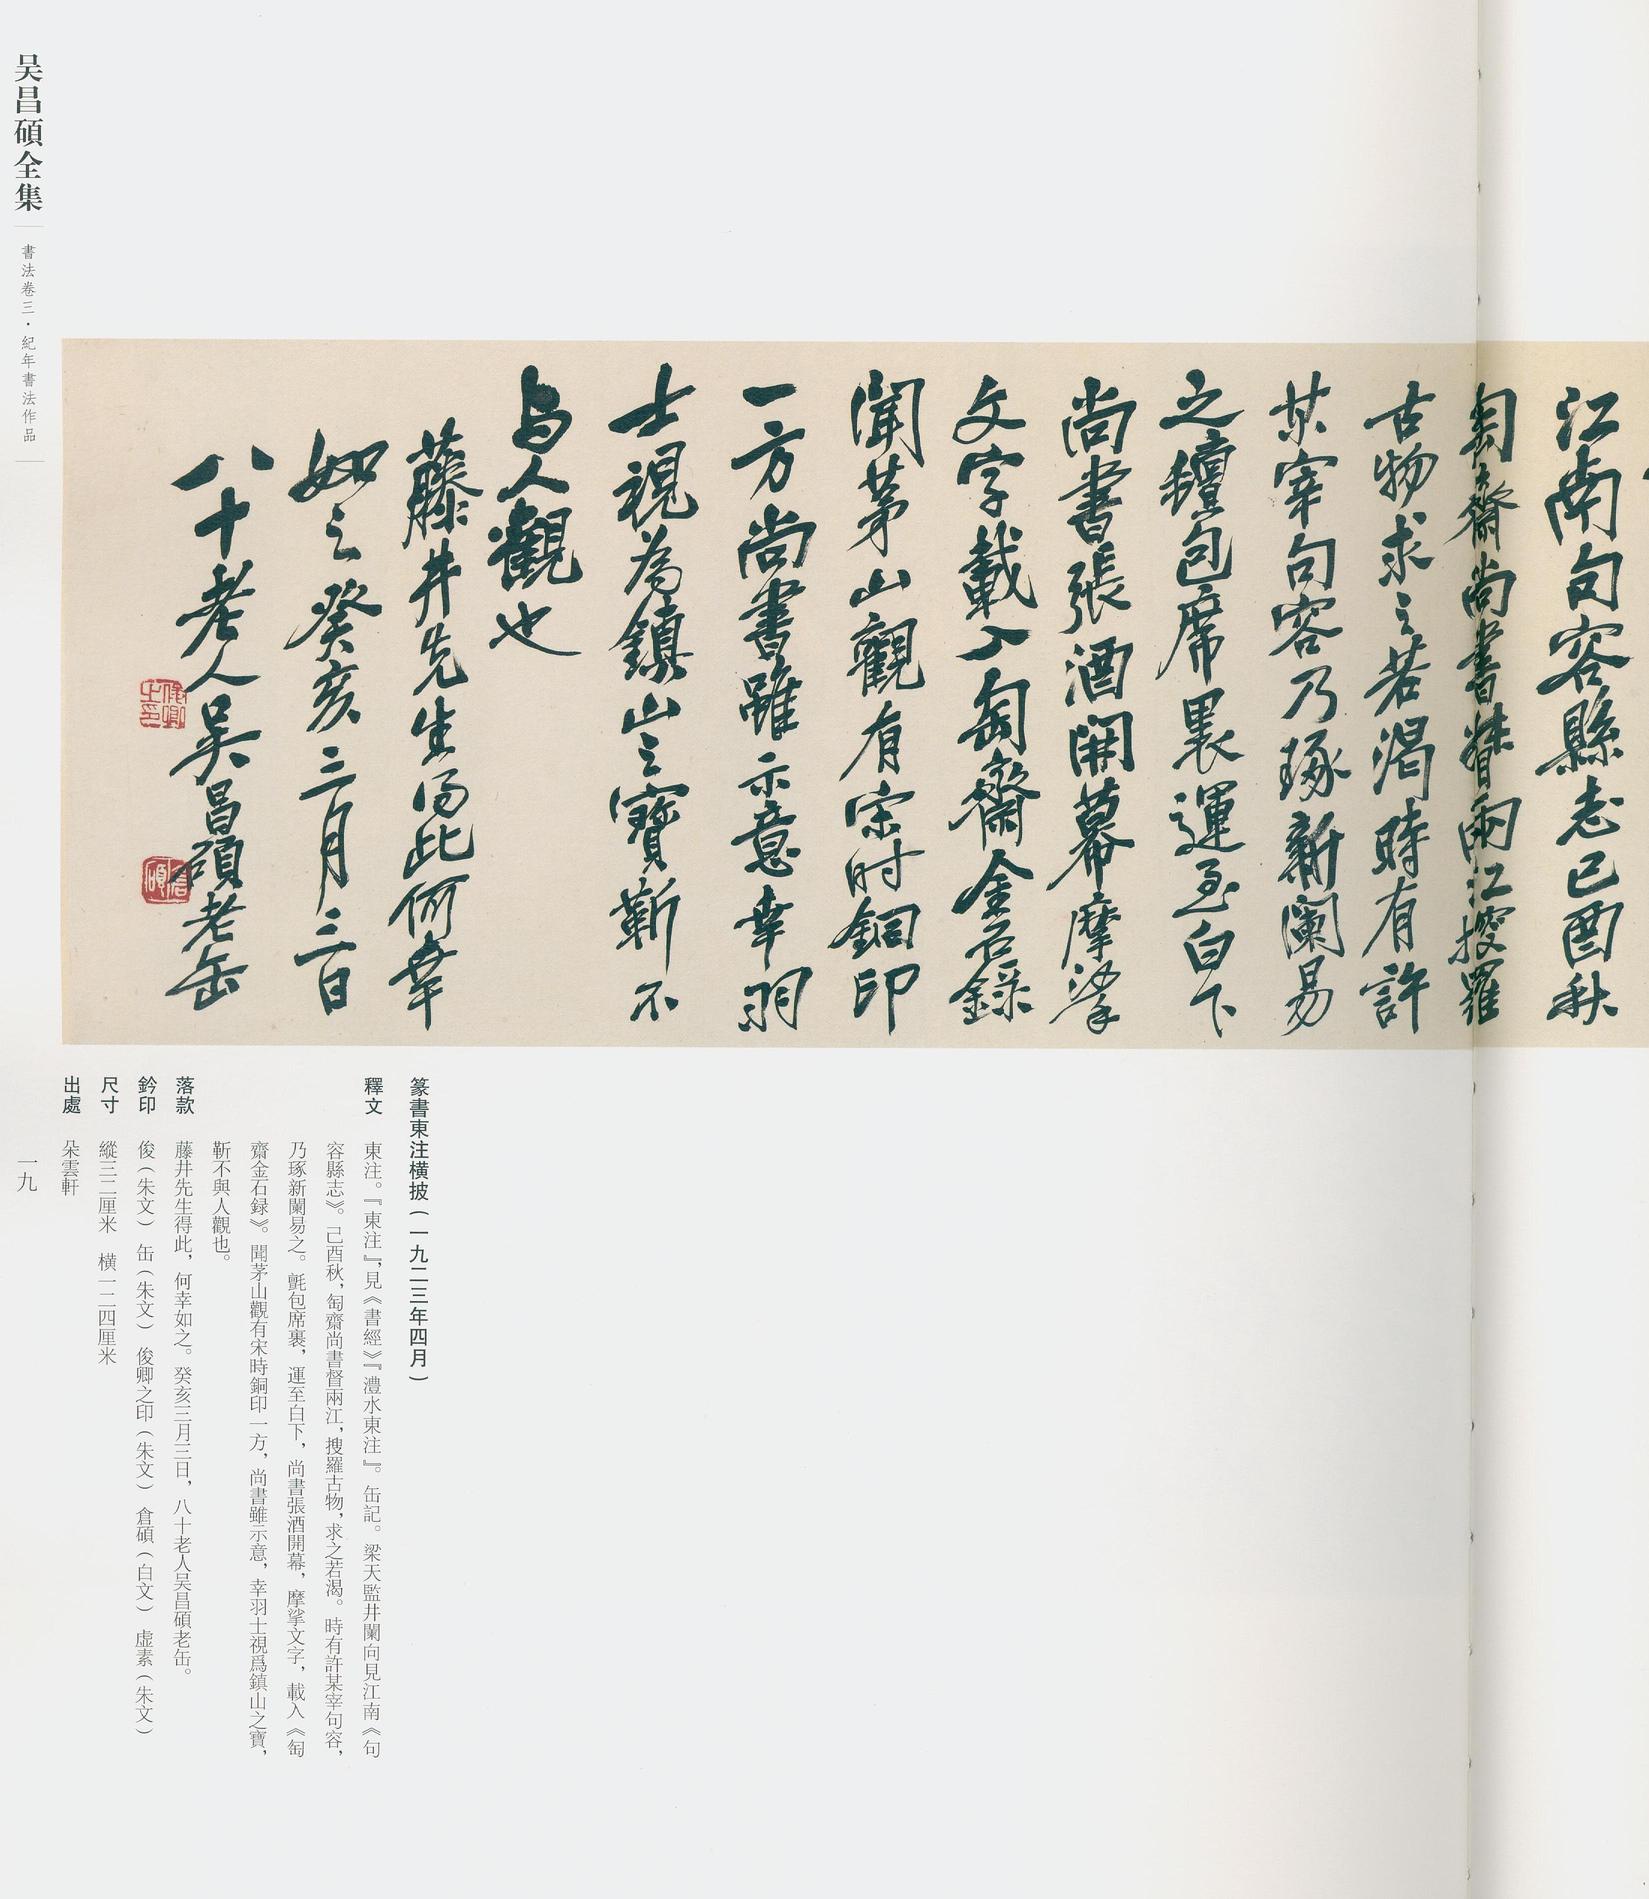 江南句容縣志己酉秋
匋齋尚書督兩江搜羅
古物求之若渴時有許
某宰句容乃琢新闌易
之氈包席裹運至白下
尚書張酒開幕摩挲
文字載入匋齋金石錄
聞茅山觀有宋时銅印
一方尚書雖示意幸羽
士視為鎮山之寶靳不
与人觀也
藤井先生得此何幸
如之癸亥三月三日
八十老人吴昌碩老缶
俊卿之印
倉碩
吴昌碩全集
書法卷三·紀年書法作品
篆書東注橫披（一九二三年四月）
釋文 東注。『東注』，見《書經》『灃水東注』。缶記。梁天監井闌向見江南《句
容縣志》。己酉秋，匋齋尚書督兩江，搜羅古物，求之若渴。時有許某宰句容，
乃琢新闌易之。氈包席裹，運至白下，尚書張酒開幕，摩挲文字，載入《匋
齋金石録》。聞茅山觀有宋時銅印一方，尚書雖示意，幸羽士視爲鎮山之寶，
靳不與人觀也。
落款 藤井先生得此，何幸如之。癸亥三月三日，八十老人吴昌碩老缶。
鈐印 俊（朱文） 缶（朱文） 俊卿之印（朱文） 倉碩（白文） 虚素（朱文）
尺寸 縱三二厘米 橫一二四厘米
出處 朵雲軒
一九